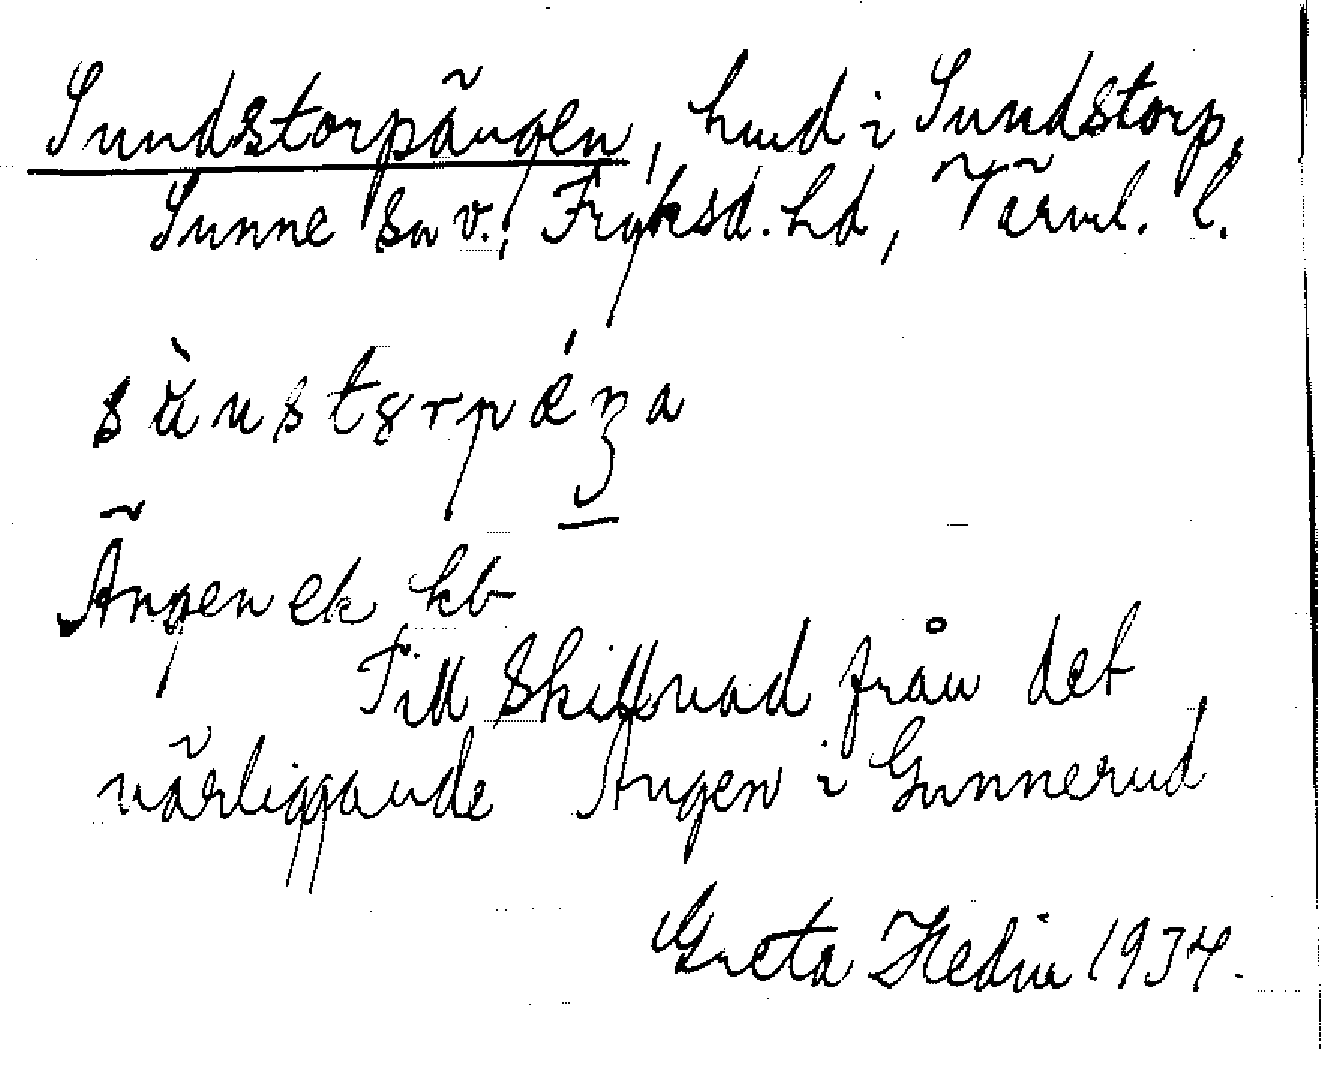 Sundstorpängen, hmd i Sundstorp,
Sunne sn v., Fryksd. hd, Värml. l.
Ängen ek kb
Till skillnad från det
närliggande Ängen i Gunnerud
Greta Hedin 1934.